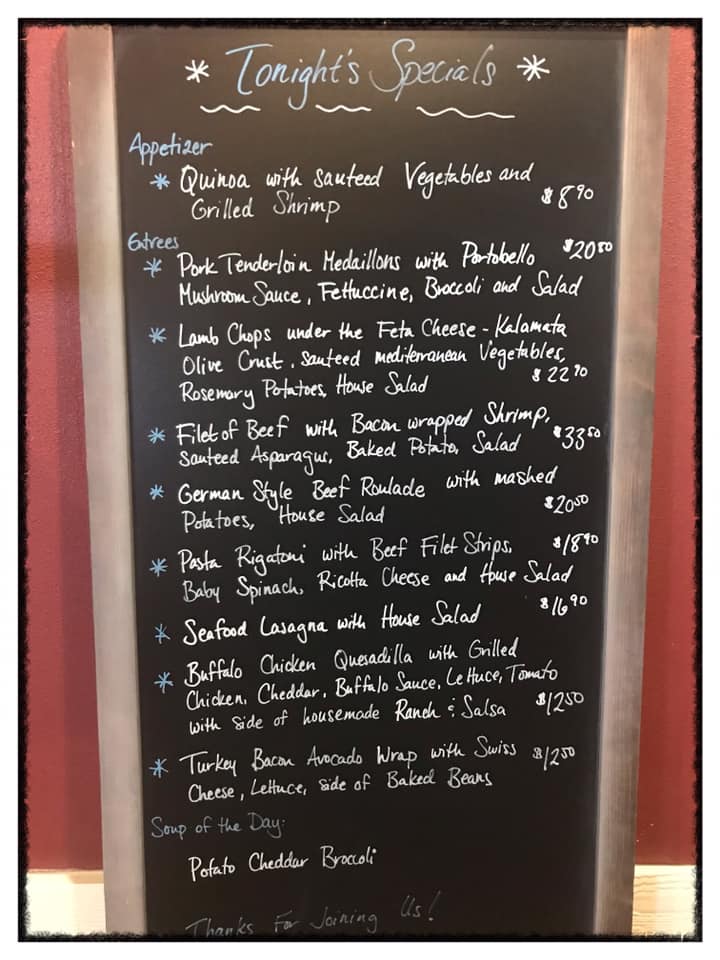 * Tonight's Specials *
Appetizer
* Quinoa with sauteed Vegetables and
Grilled Shrimp $8 90
Entrees
* Pork Tenderloin Medaillons with Portobello $20 50
Mushroom Sauce, Fettuccine, Broccoli and Salad
* Lamb Chops under the Feta Cheese - Kalamata
Olive Crust, sauteed mediterranean Vegetables,
Rosemary Potatoes, House Salad $22 90
* Filet of Beef with Bacon wrapped Shrimp,
Sauteed Asparagus, Baked Potato, Salad $33 50
* German Style Beef Roulade with mashed
Potatoes, House Salad $20 50
* Pasta Rigatoni with Beef Filet Strips, $18 90
Baby Spinach, Ricotta Cheese and House Salad
* Seafood Lasagna with House Salad $16 90
* Buffalo Chicken Quesadilla with Grilled
Chicken, Cheddar, Buffalo Sauce, Lettuce, Tomato
with side of housemade Ranch & Salsa $12 50
* Turkey Bacon Avocado Wrap with Swiss $12 50
Cheese, Lettuce, side of Baked Beans
Soup of the Day:
Potato Cheddar Broccoli
Thanks For Joining Us!